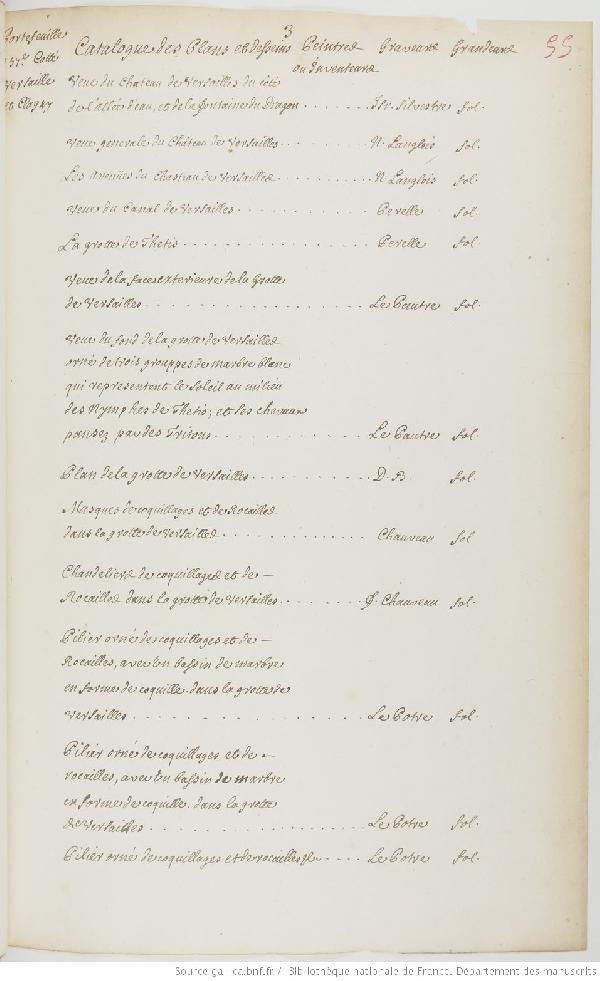 3
Portefeuille
37.e Cotté
Versaille
et Clagny
Catalogue des Plans et desseins Peintres Graveurs Grandeurs
ou Inventeurs
55
Veue du Chateau de Versailles du côté
de l'allée d'eau, et de la fontaine du Dragon . . . . . . Isr. Silvestre fol.
Veue generale du Château de Versailles . . . . . . N. Langlois fol.
Les Avenues du Chasteau de Versailles . . . . . . N. Langlois fol.
Veue du Canal de Versailles . . . . . . Perelle fol.
La grotte de Thetis . . . . . . Perelle fol.
Veue de la face exterieure de la Grotte
de Versailles . . . . . . Le Pautre fol.
Veue du fond de la grotte de Versailles
orné de trois grouppes de marbre blanc
qui representent le Soleil au milieu
des Nymphes de Thetis; et les chevaux
pansez par des Tritons . . . . . . Le Pautre fol.
Plan de la grotte de Versailles . . . . . . D. B. fol.
Masques de coquillages et de Rocailles
dans la grotte de Versailles . . . . . . Chauveau fol
Chandeliers de coquillages et de —
Rocailles dans la grotte de Versailles . . . . . . Chauveau fol.
Pilier orné de coquillages et de —
Rocailles, avec un bassin de marbre
en forme de coquille dans la grotte de
Versailles . . . . . . Le Potre fol.
Pilier orné de coquillages et de —
rocailles, avec un bassin de marbre
en forme de coquille dans la grotte
de Versailles . . . . . . Le Potre fol.
Pilier orné de coquillages et de rocailles &c . . . . Le Potre fol.
Source gallica.bnf.fr / Bibliothèque nationale de France. Département des manuscrits.